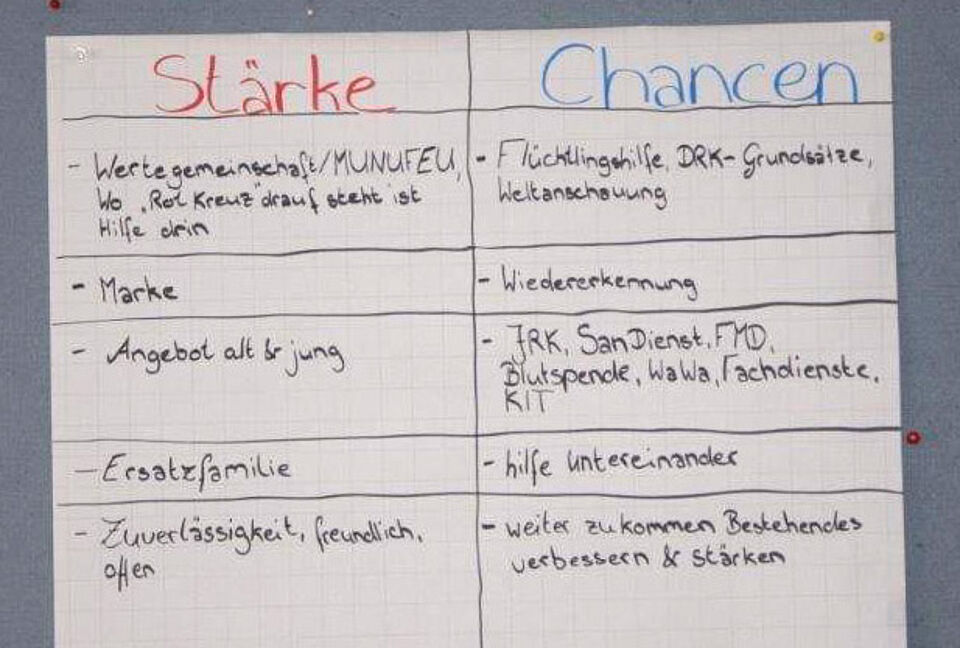 Stärke
Chancen
- Wertegemeinschaft/MUNUFEU,
Wo "Rot Kreuz" drauf steht ist
Hilfe drin
- Flüchtlingshilfe, DRK-Grundsätze,
Weltanschauung
- Marke
- Wiedererkennung
- Angebot alt & jung
- JRK, SanDienst, FMD,
Blutspende, WaWa, Fachdienste,
KIT
- Ersatzfamilie
- hilfe untereinander
- Zuverlässigkeit, freundlich,
offen
- weiter zu kommen Bestehendes
verbessern & stärken